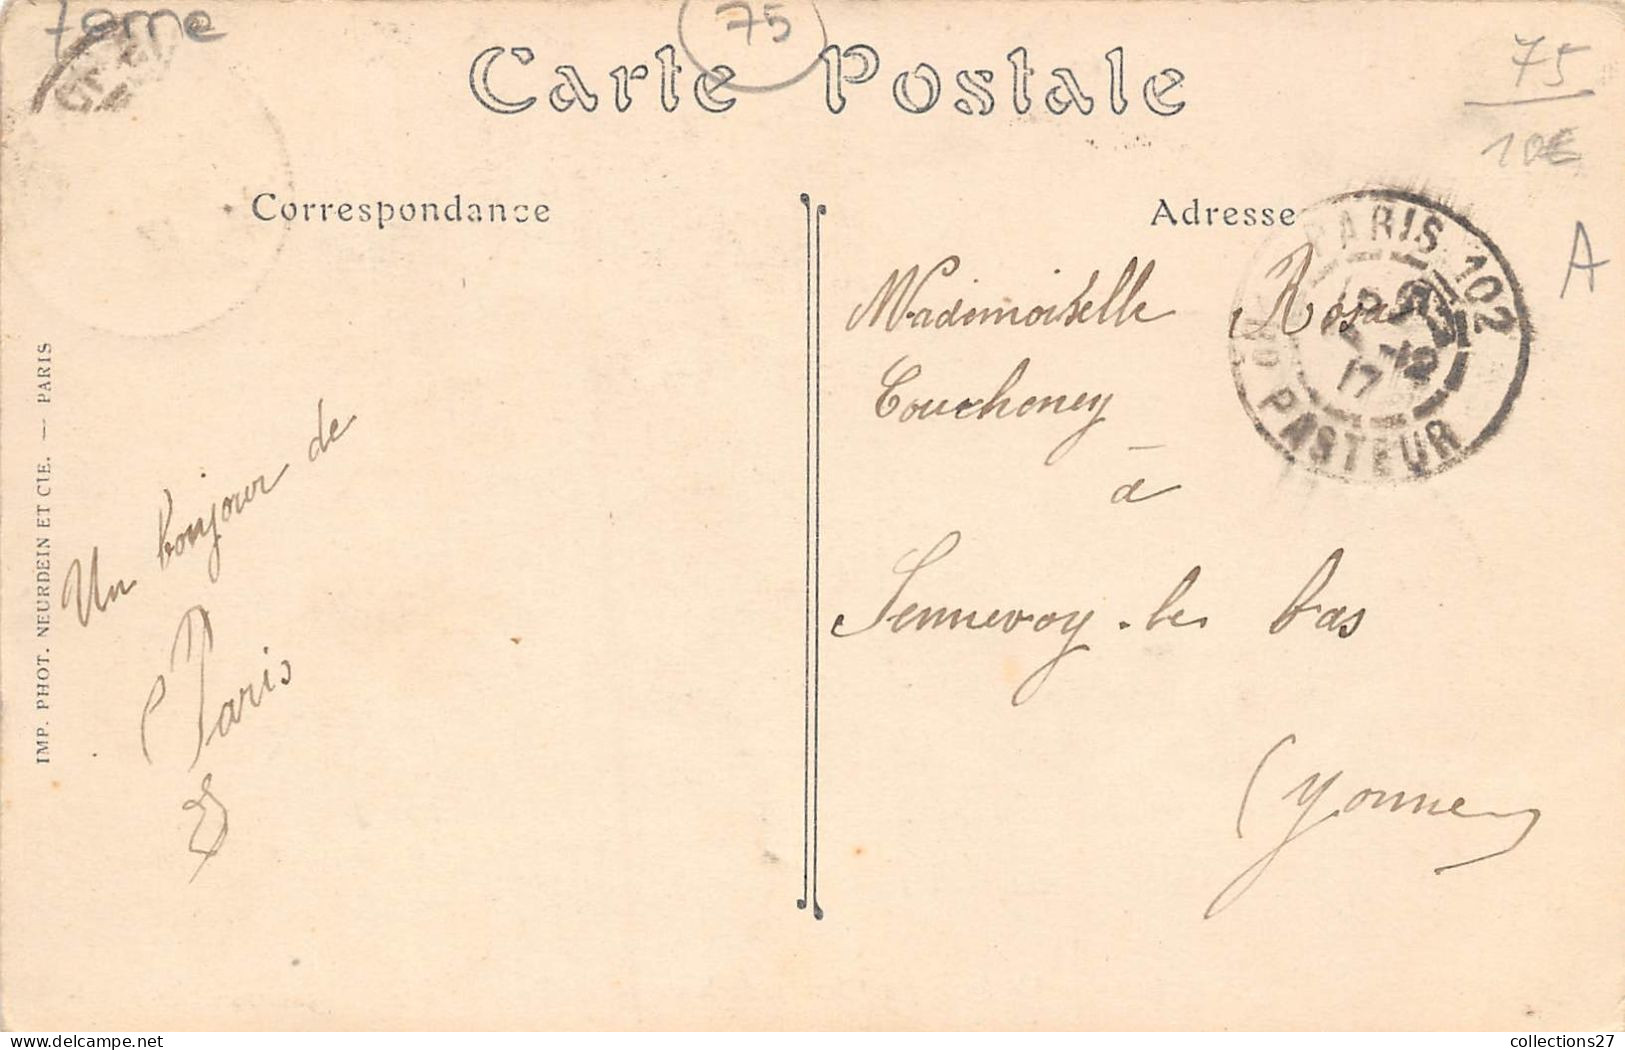 7eme
75
Carte Postale
75
10€
A
Correspondance
Adresse
PARIS 102
12
17
PASTEUR
Mademoiselle Rosa
Coucheney
à
Sennevoy-le bas
(Yonne)
Un bonjour de
Paris
IMP. PHOT. NEURDEIN ET CIE. — PARIS
collections27